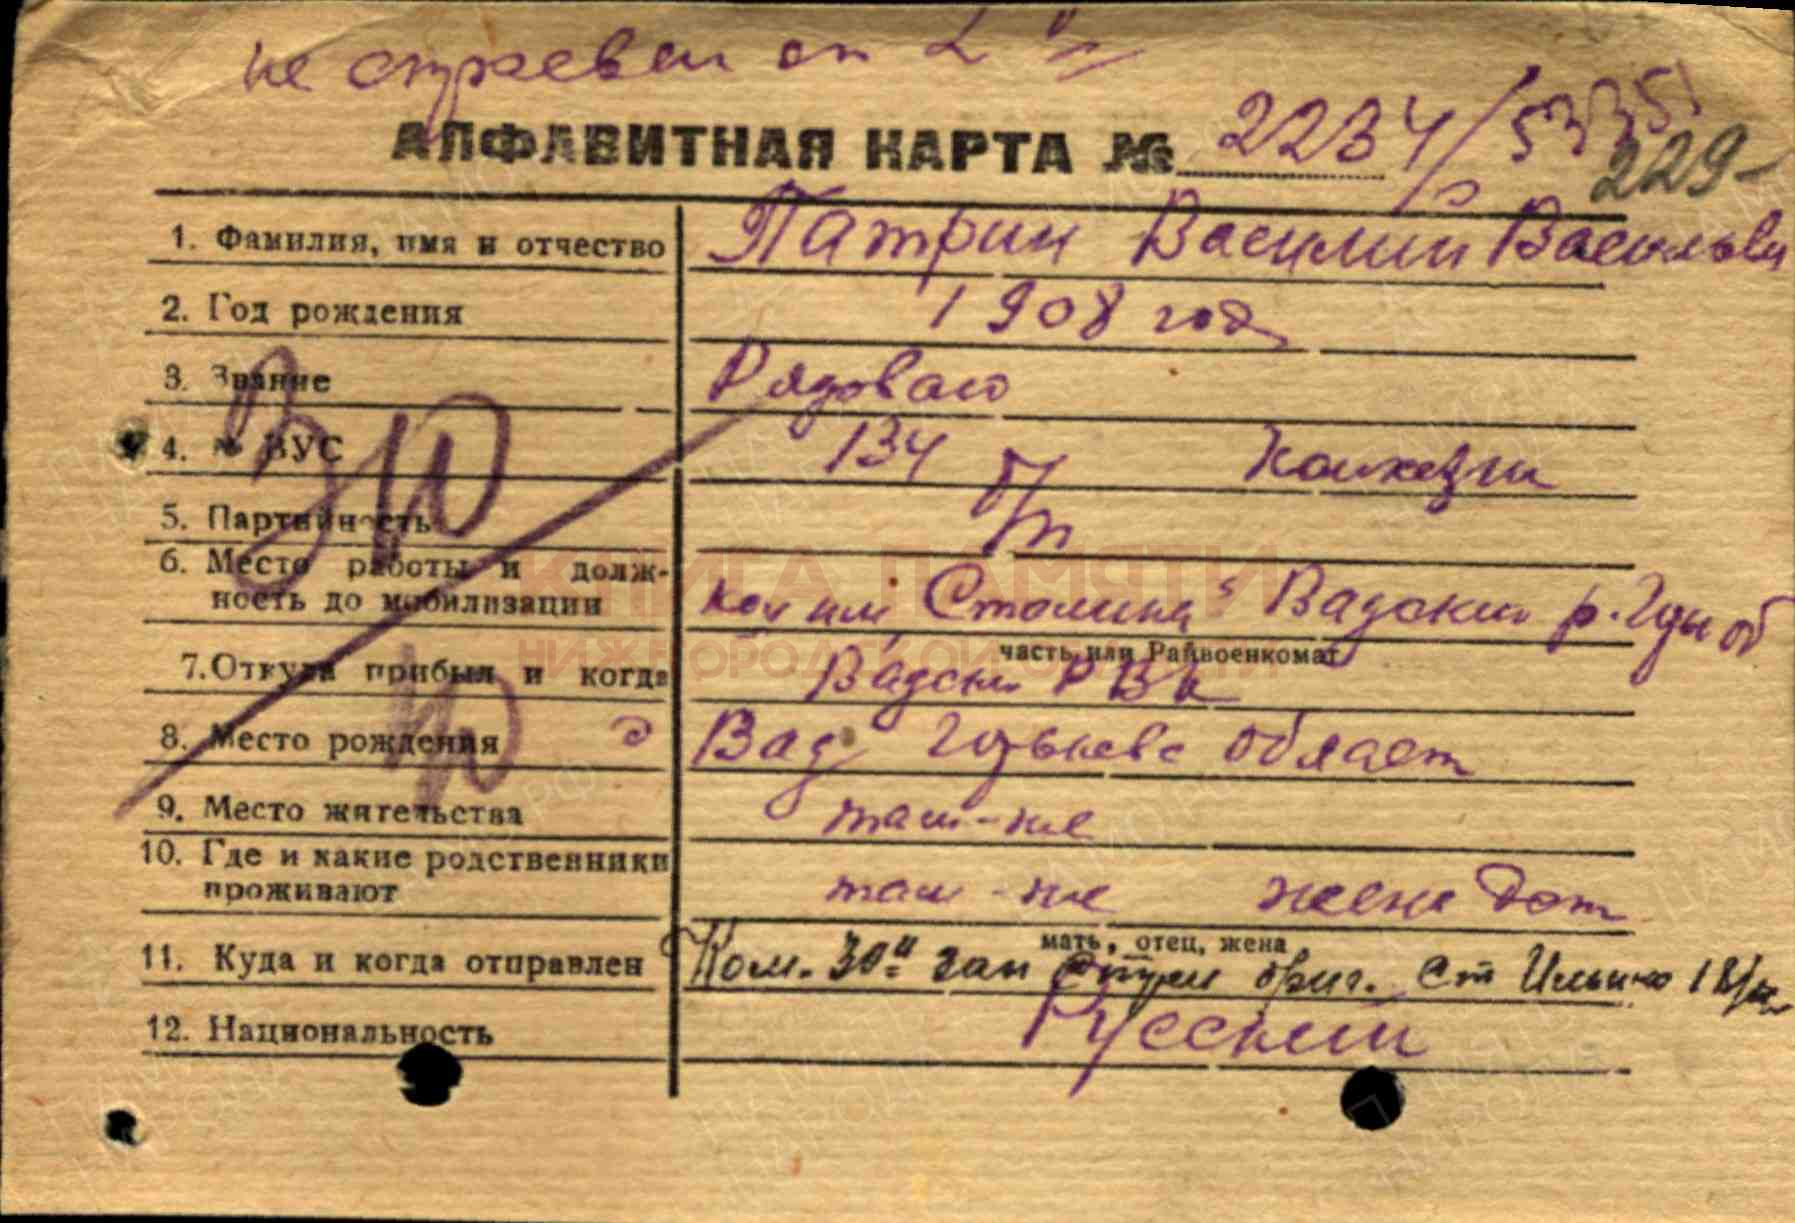 АЛФАВИТНАЯ КАРТА № 2234/
229-
1. Фамилия, имя и отчество Патрин Василий Васильеви
2. Год рождения 1908 год
3. Звание Рядовой
4. № ВУС 134
5. Партийность б/п
6. Место работы и долж-
ность до мобилизации кол им Сталина Вадский р. Горь об
часть или Райвоенкомат
7. Откуда прибыл и когда Вадски РВК
8. Место рождения Вад Горьковс област
9. Место жительства там-же
10. Где и какие родственники
проживают там-же жена
мать, отец, жена
11. Куда и когда отправлен Ком. 30й зап бриг. ст Ильино
12. Национальность Русский
КНИГА ПАМЯТИ
НИЖЕГОРОДСКОЙ ОБЛАСТИ